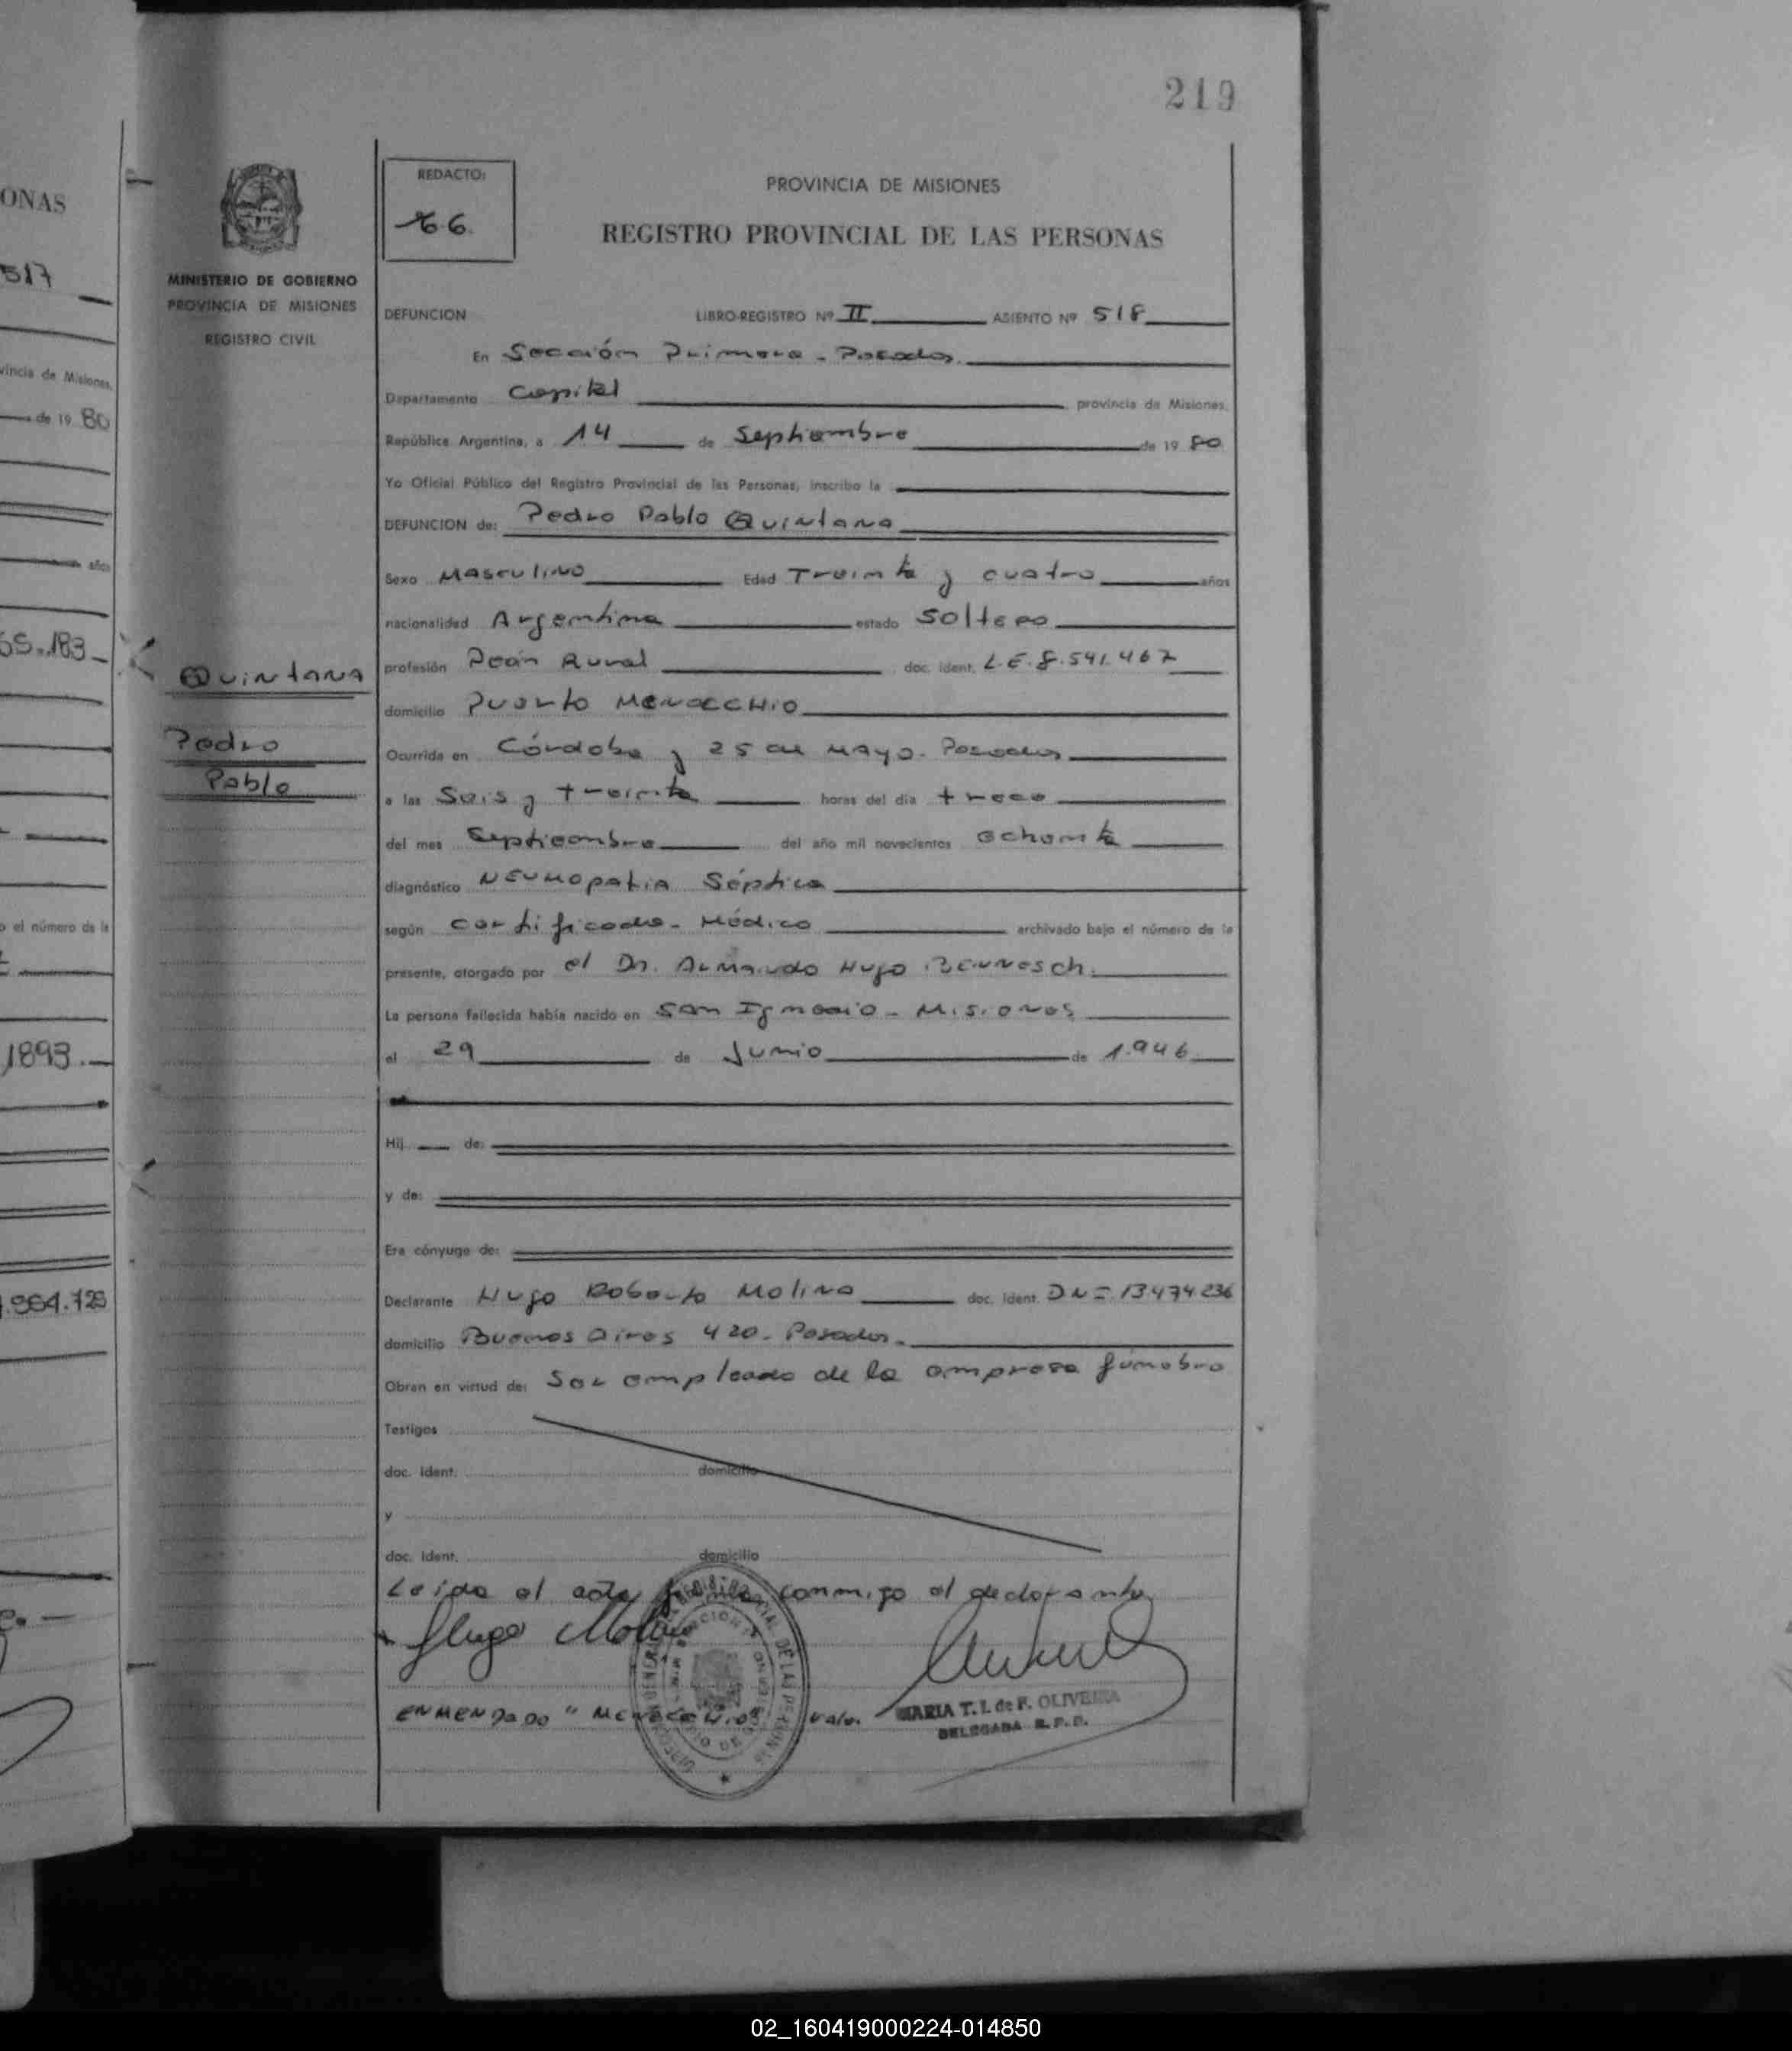 219
ONAS
517
vincia de Misiones,
de 19 80
años
55.183
o el número de la
1893.
.964.125
MINISTERIO DE GOBIERNO
PROVINCIA DE MISIONES
REGISTRO CIVIL
Quintana
Pedro
Pablo
REDACTO:
PROVINCIA DE MISIONES
REGISTRO PROVINCIAL DE LAS PERSONAS
DEFUNCION LIBRO-REGISTRO Nº II ASIENTO Nº 518
En Sección Primera - Posadas.
Departamento Capital provincia de Misiones,
República Argentina, a 14 de Septiembre de 19 80
Yo Oficial Público del Registro Provincial de las Personas, inscribo la
DEFUNCION de: Pedro Pablo Quintana
Sexo Masculino Edad Treinta y cuatro años
nacionalidad Argentina estado Soltero
profesión Peón Rural doc. ident. L.E. 8.541.467
domicilio Puerto Menocchio
Ocurrida en Córdoba y 25 de Mayo - Posadas
a las Seis y treinta horas del día trece
del mes Septiembre del año mil novecientos ochenta
diagnóstico Neumopatia Séptica
según certificado - Médico archivado bajo el número de la
presente, otorgado por el Dr. Armando Hugo Bennesch.
La persona fallecida había nacido en San Ignacio - Misiones
el 29 de Junio de 1.946
Hij de:
y de:
Era cónyuge de:
Declarante Hugo Roberto Molina doc. ident. DNI 13474236
domicilio Buenos Aires 420 - Posadas.
Obran en virtud de: Ser empleado de la empresa fúnebre
Testigos
doc. ident. domicilio
y
doc. ident. domicilio
Leída el acta firma conmigo el declarante
Hugo Molina
ENMENDADO "MENOCCHIO" vale.
MARIA T. I. de F. OLIVEIRA
DELEGADA R.P.P.
02_160419000224-014850